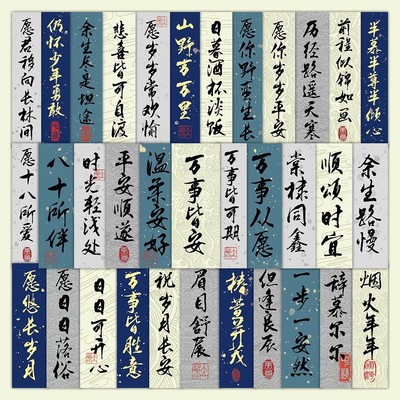 愿君移向长林间
仍怀少年勇敢
余生长是坦途
悲喜皆可自渡
愿岁岁常欢愉
山野万万里
日暮酒杯淡饭
愿你野蛮生长
愿你岁岁平安
历经路遥天寒
前程似锦如画
半慕半尊半倾心
愿十八所爱
八十所伴
时光轻浅处
平安顺遂
温柔安好
万事皆安
万事皆可期
万事从愿
棠棣同鑫
顺颂时宜
余生路慢
愿悠长岁月
愿日日落俗
日日可开心
万事皆胜意
祝岁月长安
眉目舒展
椿萱并茂
但逢良辰
一步一安然
辞慕尔尔
烟火年年